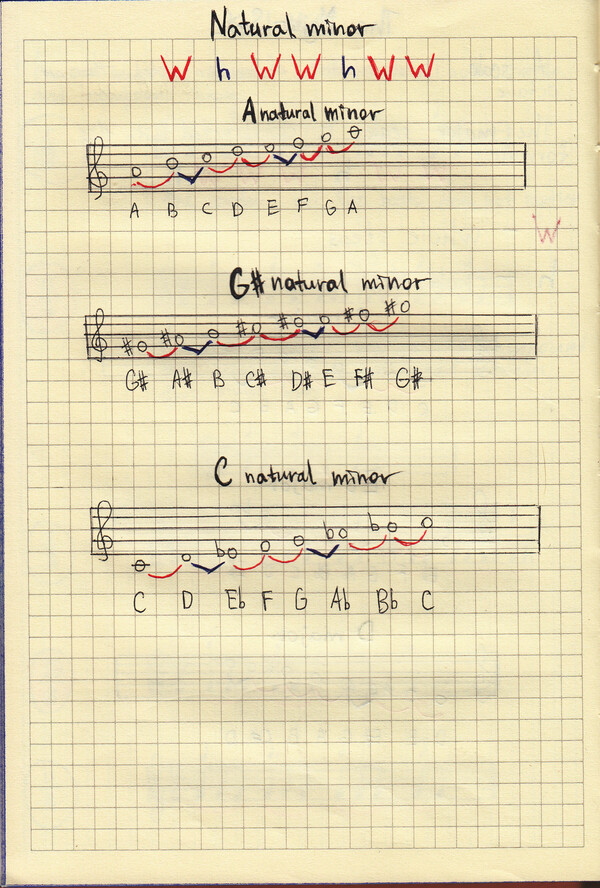 Natural minor
W h W W h W W
A natural minor
A B C D E F G A
W
G# natural minor
# # # # # #
G# A# B C# D# E F# G#
C natural minor
b b b
C D Eb F G Ab Bb C